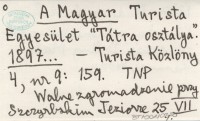 A Magyar Turista
Egyesület "Tátra osztálya".
1897... - Turista Közlöny
4, nr 9: 159. TNP
Walne zgromadzenie przy
Szczyrbskim Jeziorze 25 VII